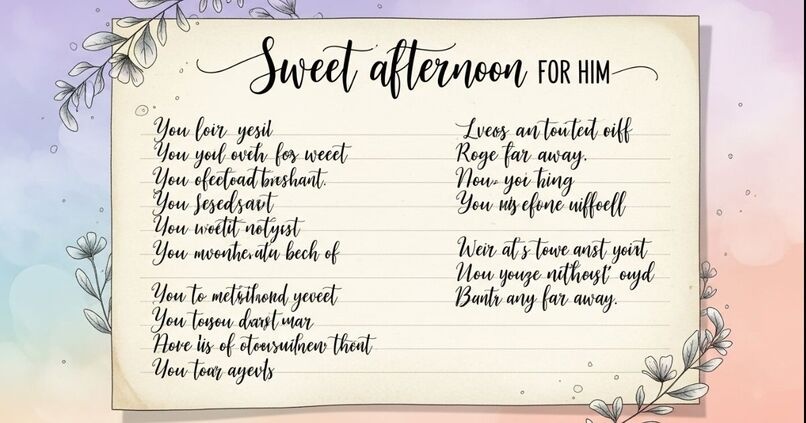 Sweet afternoon FOR HIM
You loir yesil
You yoil oveh fos weeet
You ofectoad breshant.
You Sesedsart
You woetit notyist
You mvonhe.ata bech of
You to metrihond yeveet
You tousu darst mar
Aove iis of otousuilnew thent
You toar ayevls
Lveos an touted oiff
Roge far away.
Now yoi hing
You efone uiffoell
Weir at s towe anst yoirt
Nou youze nithoist' ouyd
Bantr any far away.